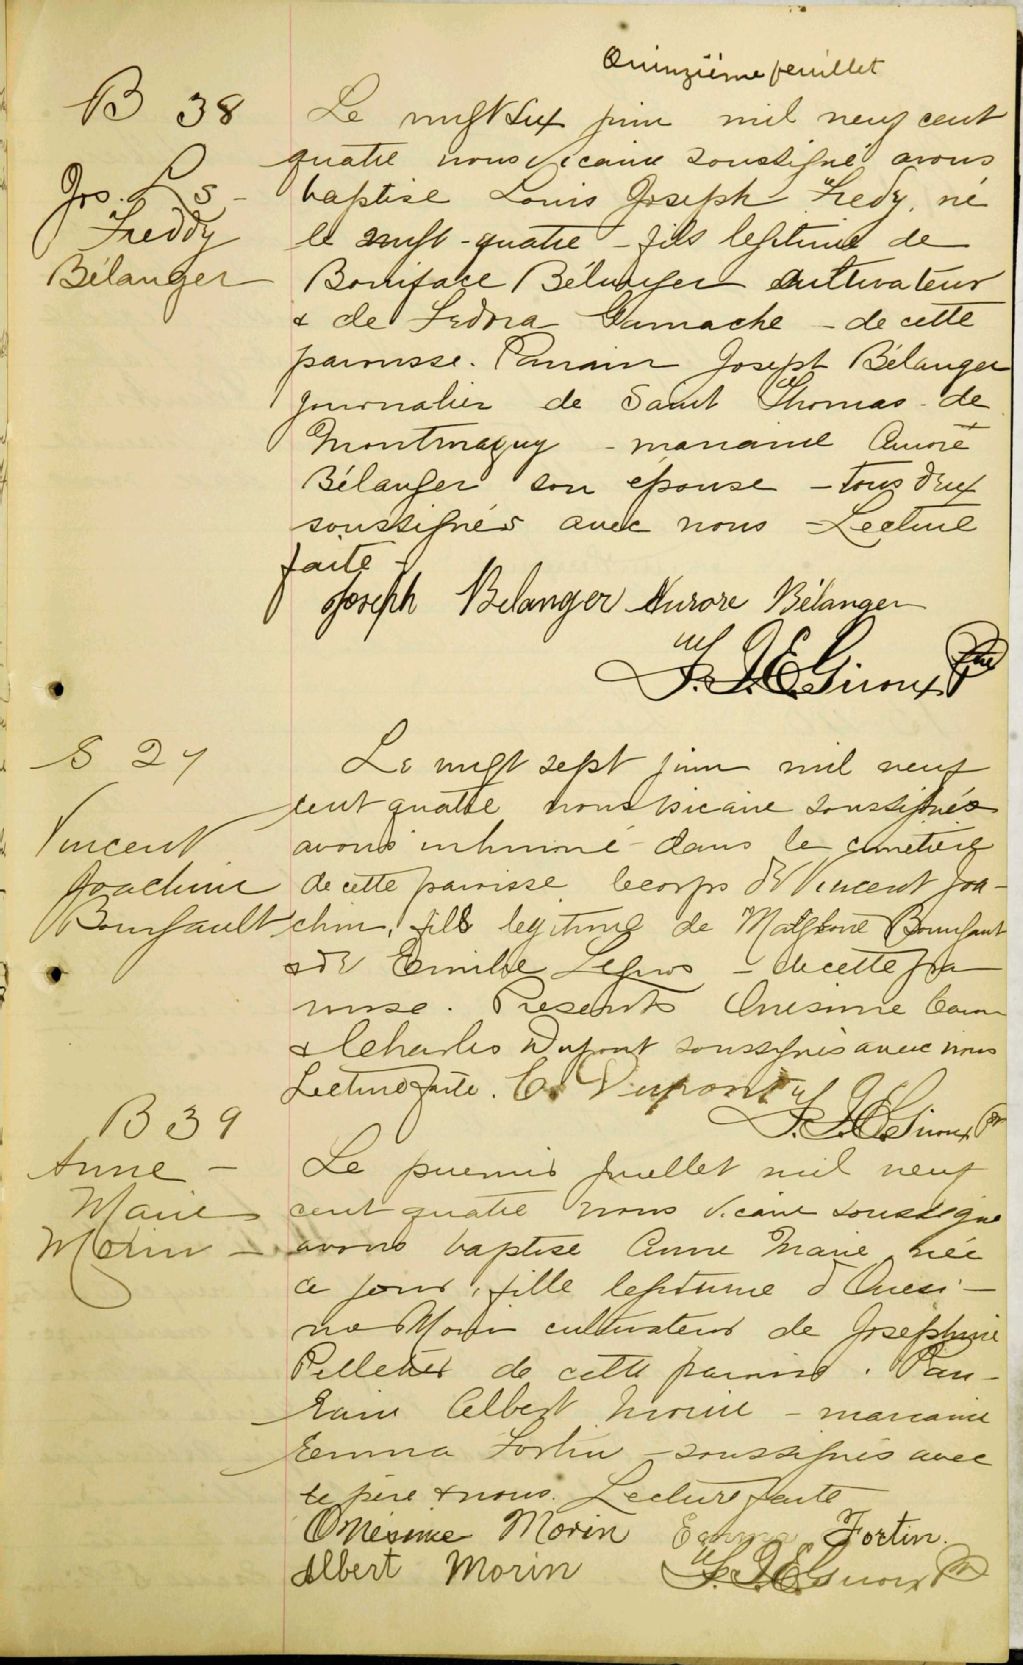 Quinzième feuillet
B 38
Jos. Ls -
Freddy
Bélanger
Le vingt six juin mil neuf cent
quatre nous vicaire soussigné avons
baptisé Louis Joseph Fredy, né
le vingt-quatre - fils legitime de
Boniface Bélanger cultivateur
& de Gamache - de cette
paroisse. Parrain Joseph Bélanger
journalier de Saint Thomas de
Montmagny - marraine Aurore
Bélanger son épouse - tous deux
soussignés avec nous - Lecture
faite -
Joseph Belanger Aurore Bélanger
J. E. Giroux Ptre
S 27
Vincent
Joachim
Bourgault
Le vingt sept juin mil neuf
cent quatre nous vicaire soussigné
avons inhumé dans le cimetière
de cette paroisse le corps de Vincent Joa-
chim, fils legitime de Bourgault
& de Emilie - de cette pa
roisse. Presents Onesime Caron
& Charles Dupont soussignés avec nous
Lecture faite. C. Dupont
J. E. Giroux Ptr
B 39
Anne -
Marie
Morin -
Le premier Juillet mil neuf
cent quatre nous vicaire soussigné
avons baptisé Anne Marie née
ce jour, fille legitime d'Onesi-
me Morin cultivateur de Josephine
Pelletier de cette paroisse. Par-
rain Albert Morin - marraine
Emma Fortin - soussignés avec
le père & nous. Lecture faite
Onésime Morin Emma Fortin.
Albert Morin J. E. Giroux Ptr